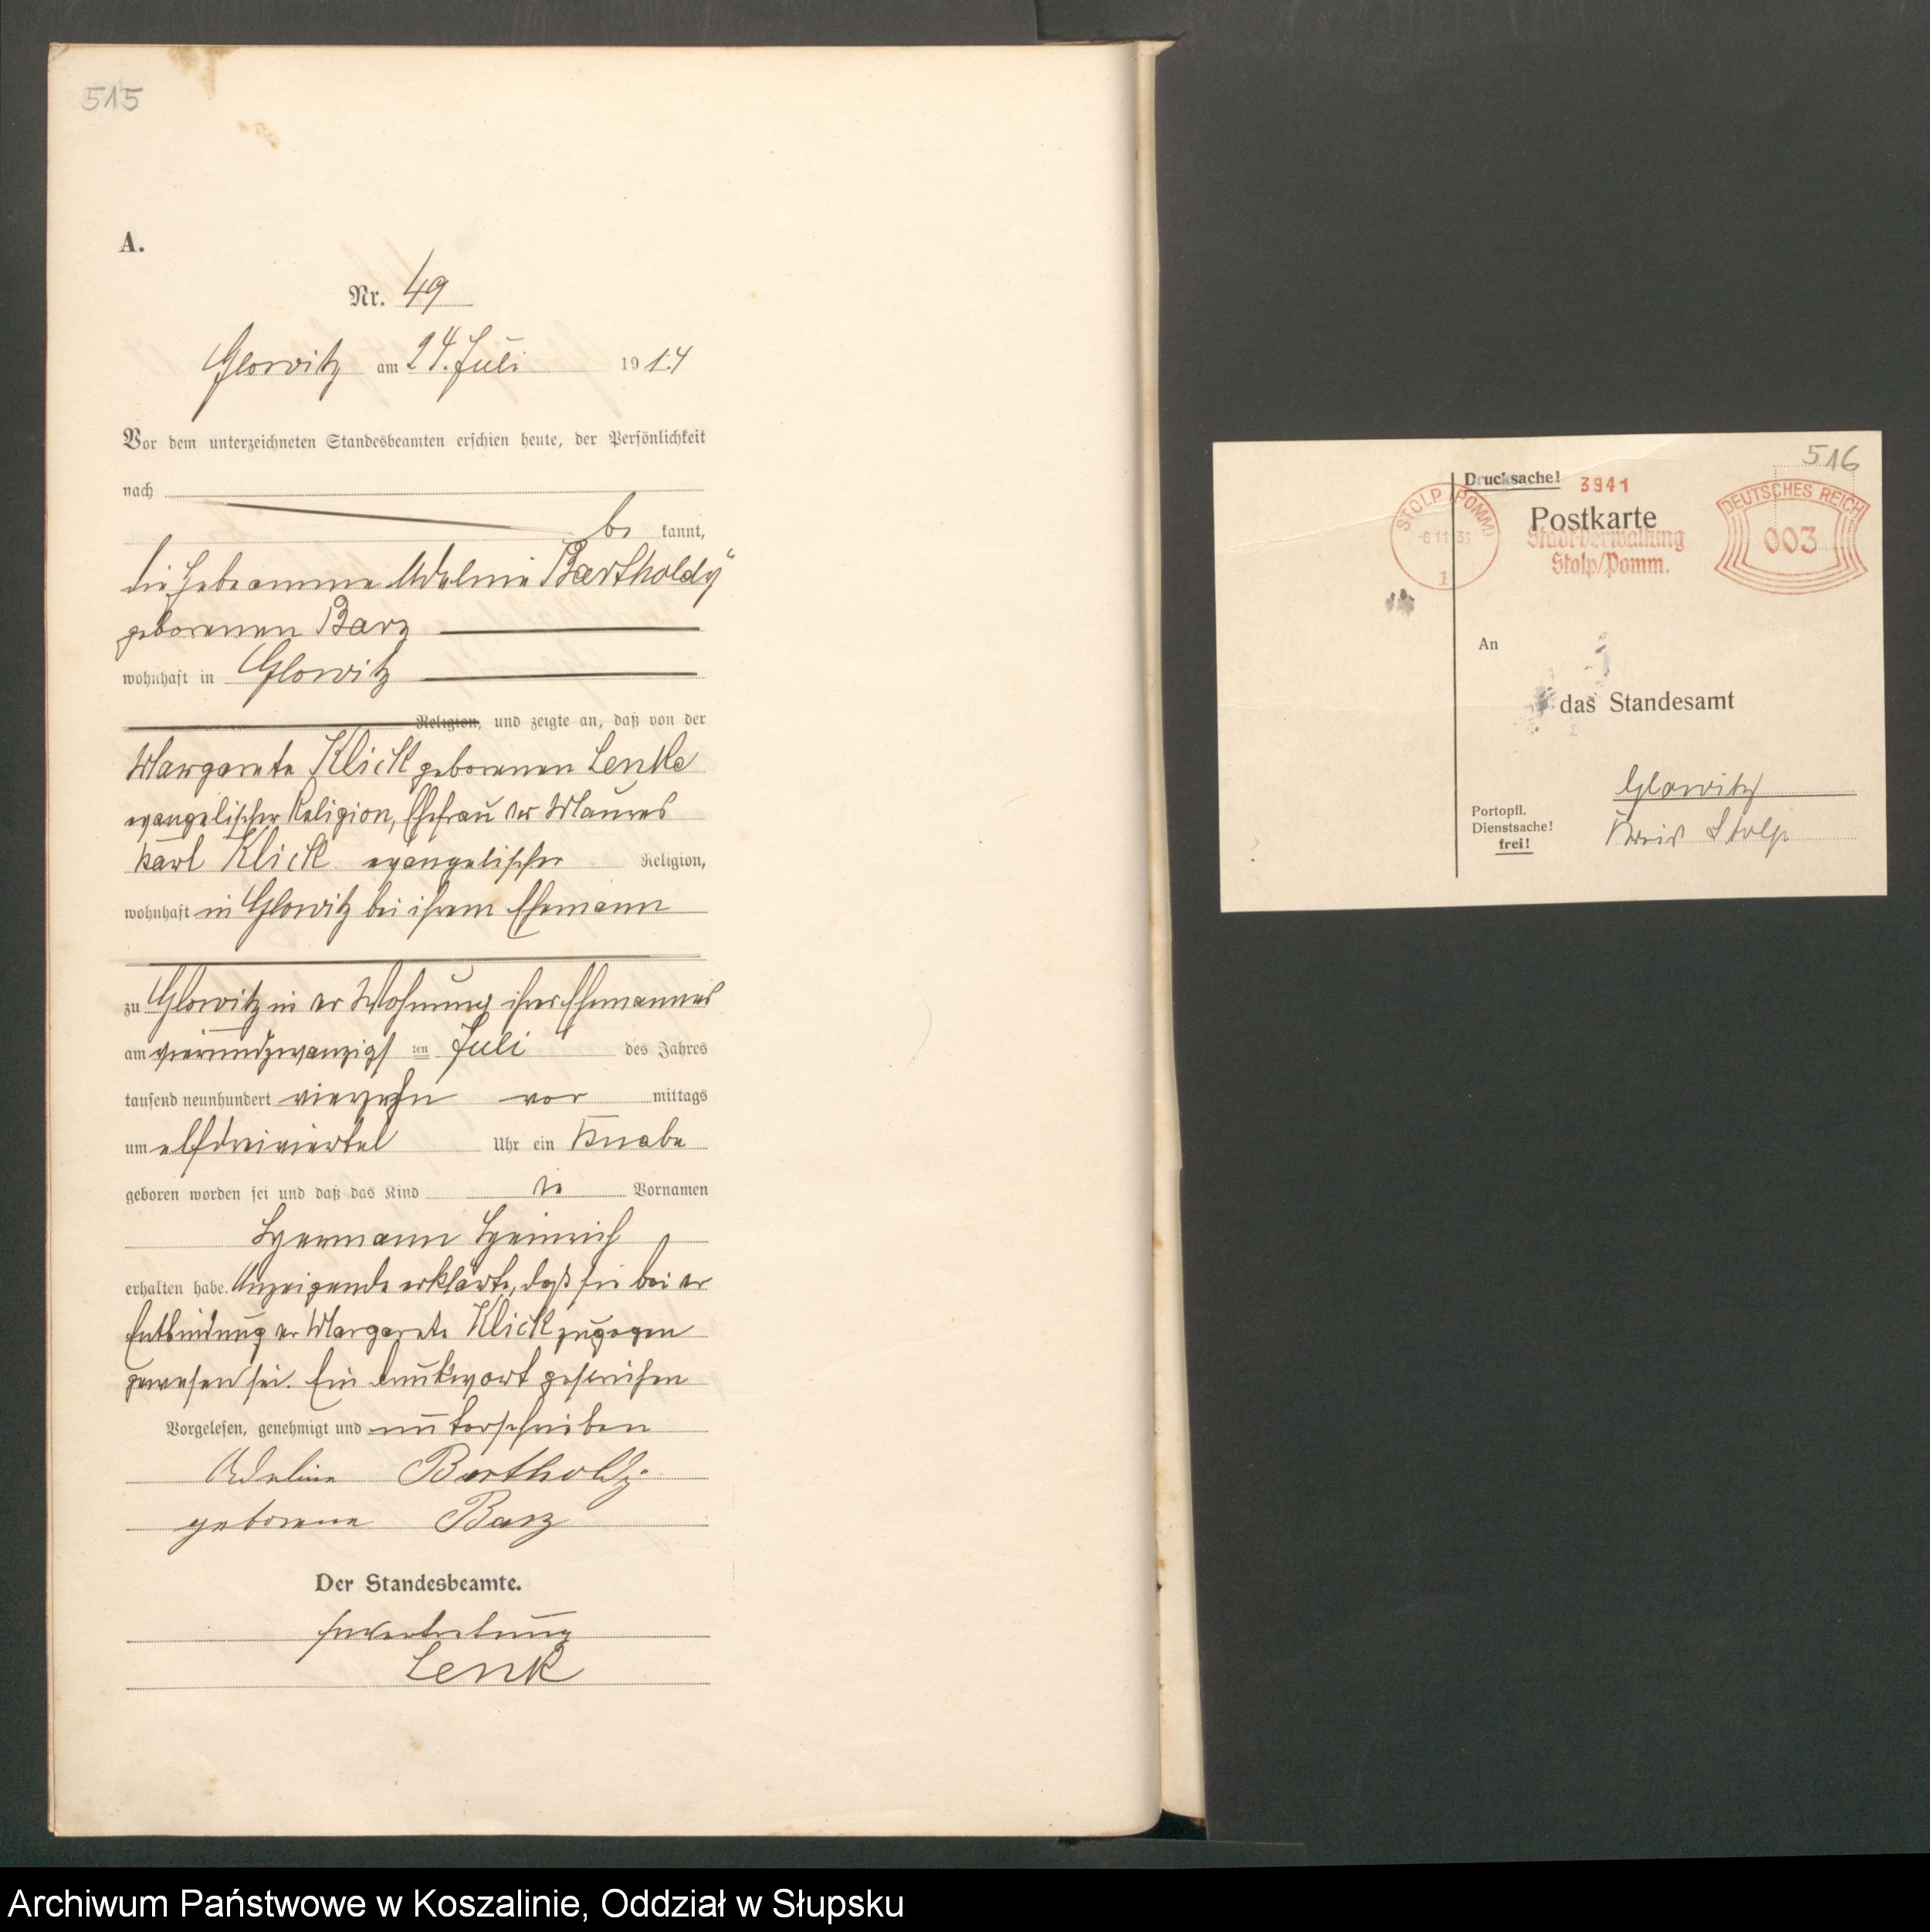 515
A.
Nr. 49
Glowitz am 24. Juli 1914
Vor dem unterzeichneten Standesbeamten erschien heute, der Persönlichkeit
nach
be kannt,
die Hebeamme Adeline Bartholdy
geborenen Barz
wohnhaft in Glowitz
Religion, und zeigte an, daß von der
Margarete Klick geborenen Lenke
evangelischer Religion, Ehefrau des Maurers
Karl Klick evangelischer Religion,
wohnhaft in Glowitz bei ihrem Ehemann
zu Glowitz in der Wohnung ihres Ehemannes
am vierundzwanzigs ten Juli des Jahres
tausend neunhundert vierzehn vor mittags
um elfdreiviertel Uhr ein Knabe
geboren worden sei und daß das Kind die Vornamen
Hermann Heinrich
erhalten habe. Anzeigende erklärte, daß sie bei der
Entbindung der Margarete Klick zugegen
gewesen sei. Ein Druckwort gestrichen
Vorgelesen, genehmigt und unterschrieben
Adeline Bartholdy
geborene Barz
Der Standesbeamte.
In Vertretung
Lenk
516
Drucksache! 3941
STOLP (POMM)
-6 11 33
1
DEUTSCHES REICH
003
Postkarte
Stadt-Verwaltung
Stolp/Pomm.
An
das Standesamt
Glowitz
Portopfl.
Dienstsache!
frei!
Kreis Stolp
Archiwum Państwowe w Koszalinie, Oddział w Słupsku